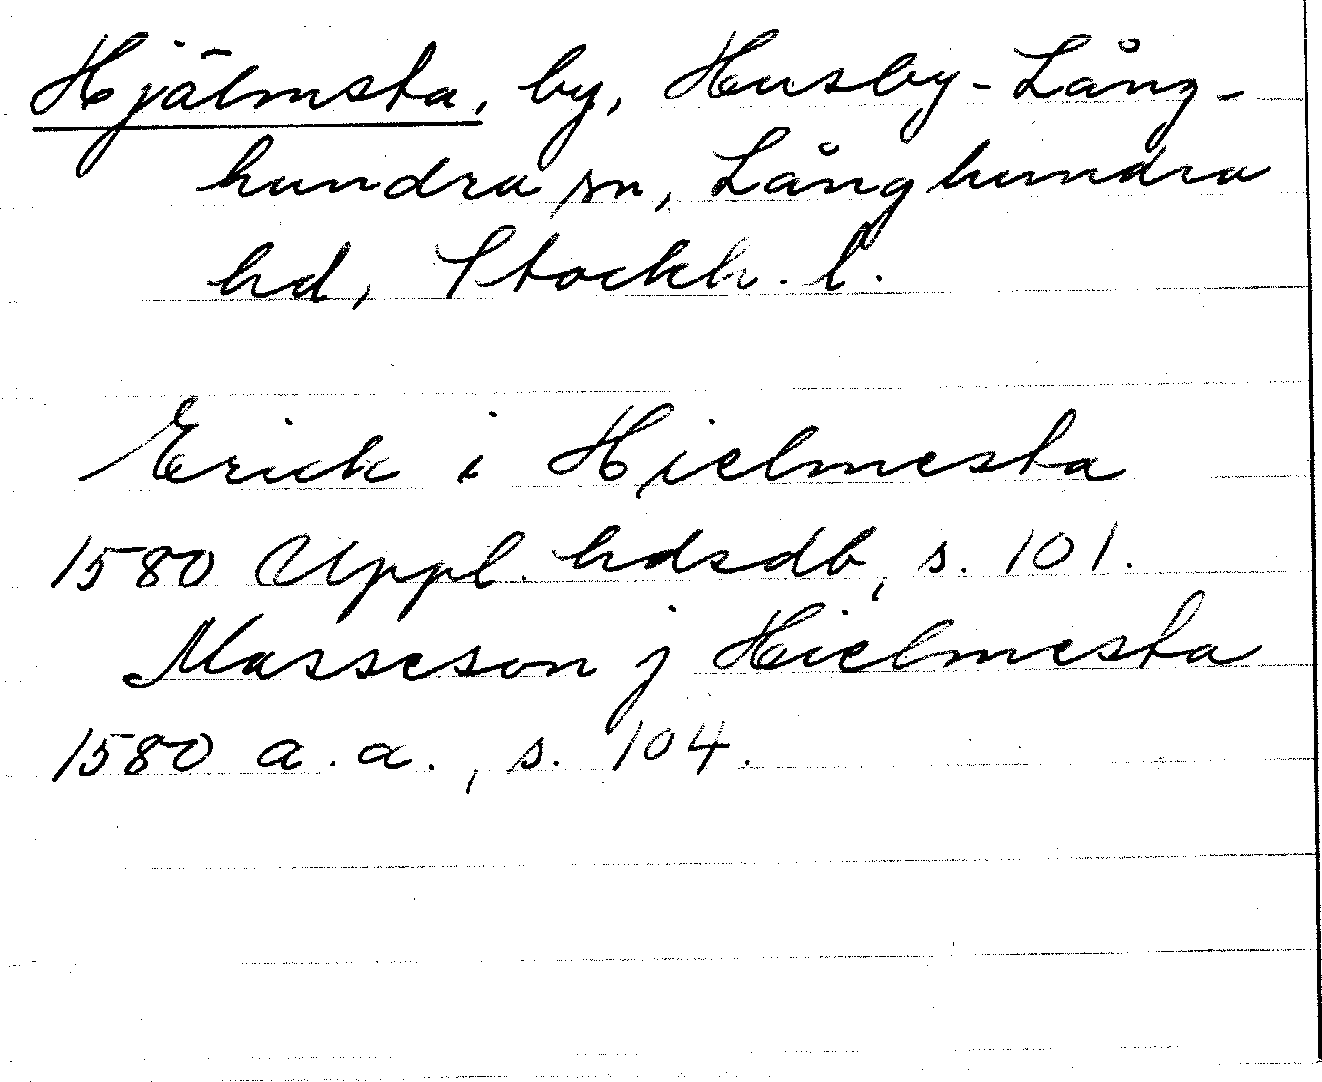 Hjälmsta, by, Husby-Lång-
hundra sn, Långhundra
hd, Stockh. l.
Erick i Hielmesta
1580 Uppl. hdsdb, s. 101.
Masseson j Hielmesta
1580 a.a., s. 104.